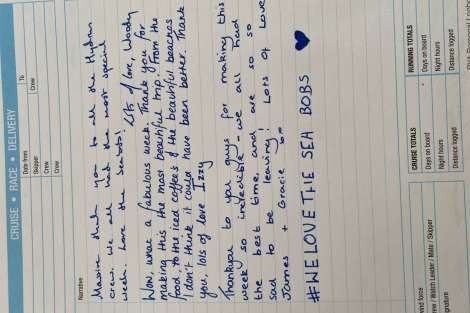 CRUISE • RACE • DELIVERY
Date from
To
Skipper
Crew
Crew
Crew
Narrative
Massive thank you to all the Hydra
crew. We all had the most special
week. Love the Seabobs! Lots of love, Woody
Wow, what a fabulous week. Thank you for
making this the most beautiful trip! From the
food, to the iced coffee's & the beautiful beaches
I don't think it could have been better. Thank
you, lots of love Izzy
Thankyou to you guys for making this
week so incredible - we all had
the best time and are so so
sad to be leaving! Lots of Love
James + Gracie
#WELOVETHE SEA BOBS
CRUISE TOTALS
Days on board
Night hours
Distance logged
RUNNING TOTALS
Days on board
Night hours
Distance logged
wind force
Crew / Watch Leader / Mate / Skipper